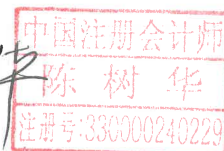 中国注册会计师
陈树华
注册号:330000240229